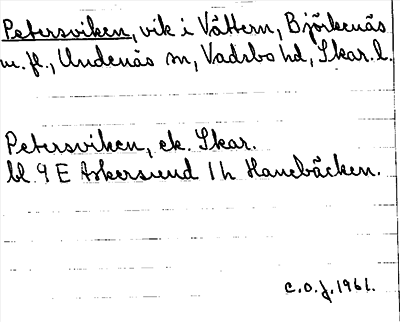 Petersviken, vik i Vättern, Björkenäs
m.fl., Undenäs sn, Vadsbo hd, Skar.l.
Petersviken, ek. Skar.
bl. 9 E Askersund 1 h Hanebäcken.
C.O.J. 1961.